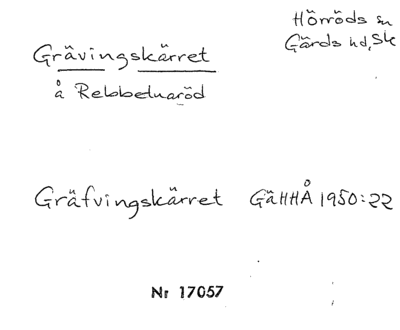 Hörröds sn
Gärds hd, Sk
Grävingskärret
å Rebbetuaröd
Gräfvingskärret GäHHÅ 1950:22
Nr 17057